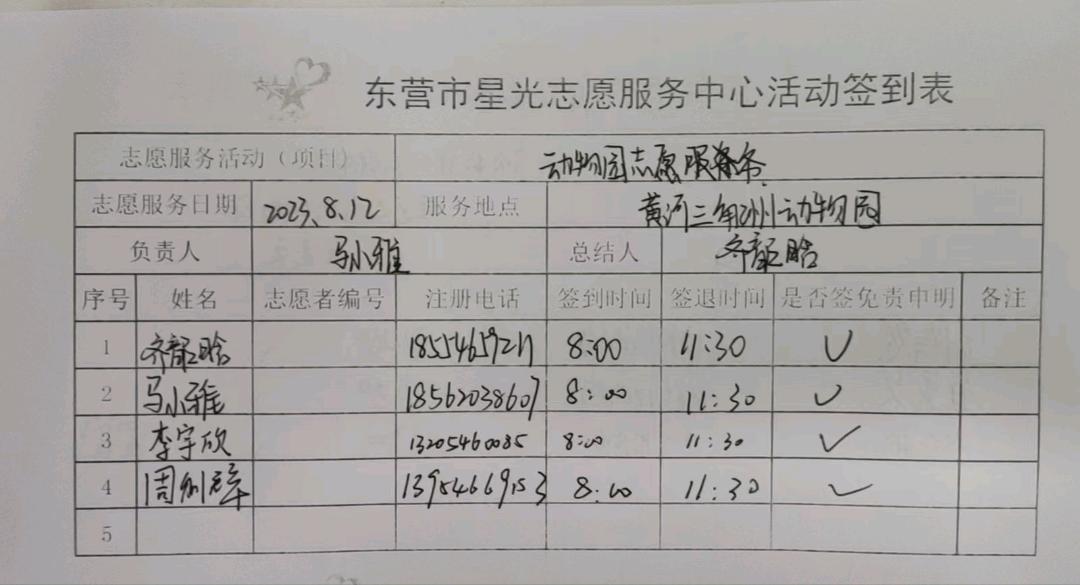 东营市星光志愿服务中心活动签到表
志愿服务活动（项目） 动物园志愿服务
志愿服务日期 2023.8.12 服务地点 黄河三角洲动物园
负责人 马小雅 总结人 齐韶晗
序号 姓名 志愿者编号 注册电话 签到时间 签退时间 是否签免责申明 备注
1 齐韶晗 18554659211 8:00 11:30 ✓
2 马小雅 18562038607 8:00 11:30 ✓
3 李宇欣 13205460085 8:00 11:30 ✓
4 13954669153 8:00 11:30 ✓
5